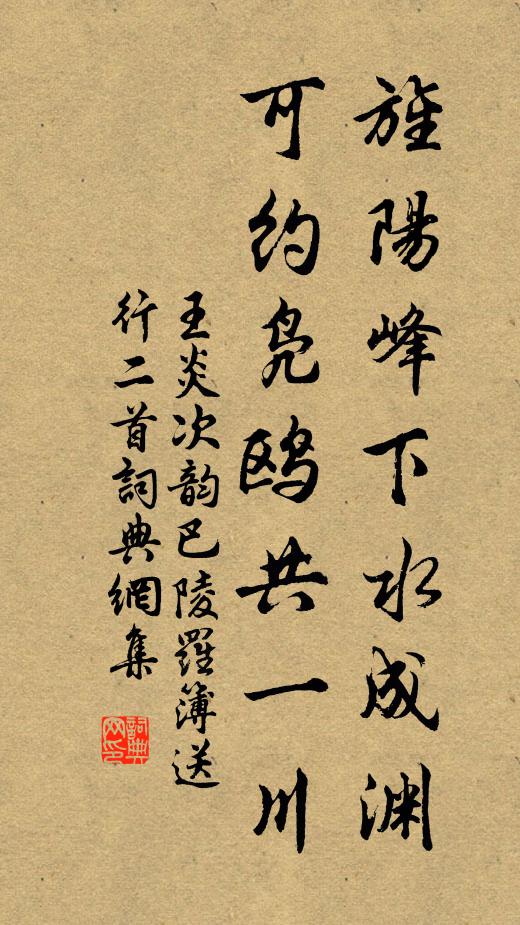 旌陽峰下水成渊
可約凫鸥共一川
王炎次韵巴陵羅簿送
行二首詞典網集
詞典网印